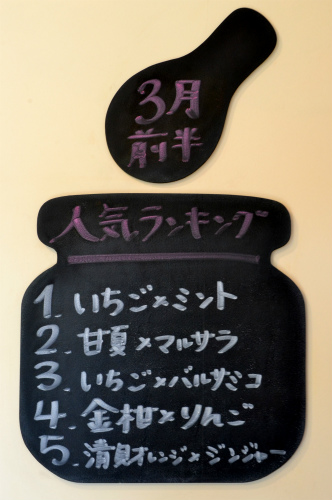 3月
前半
人気ランキング
1. いちご×ミント
2. 甘夏×マルサラ
3. いちご×バルサミコ
4. 金柑×りんご
5. 清見オレンジ×ジンジャー